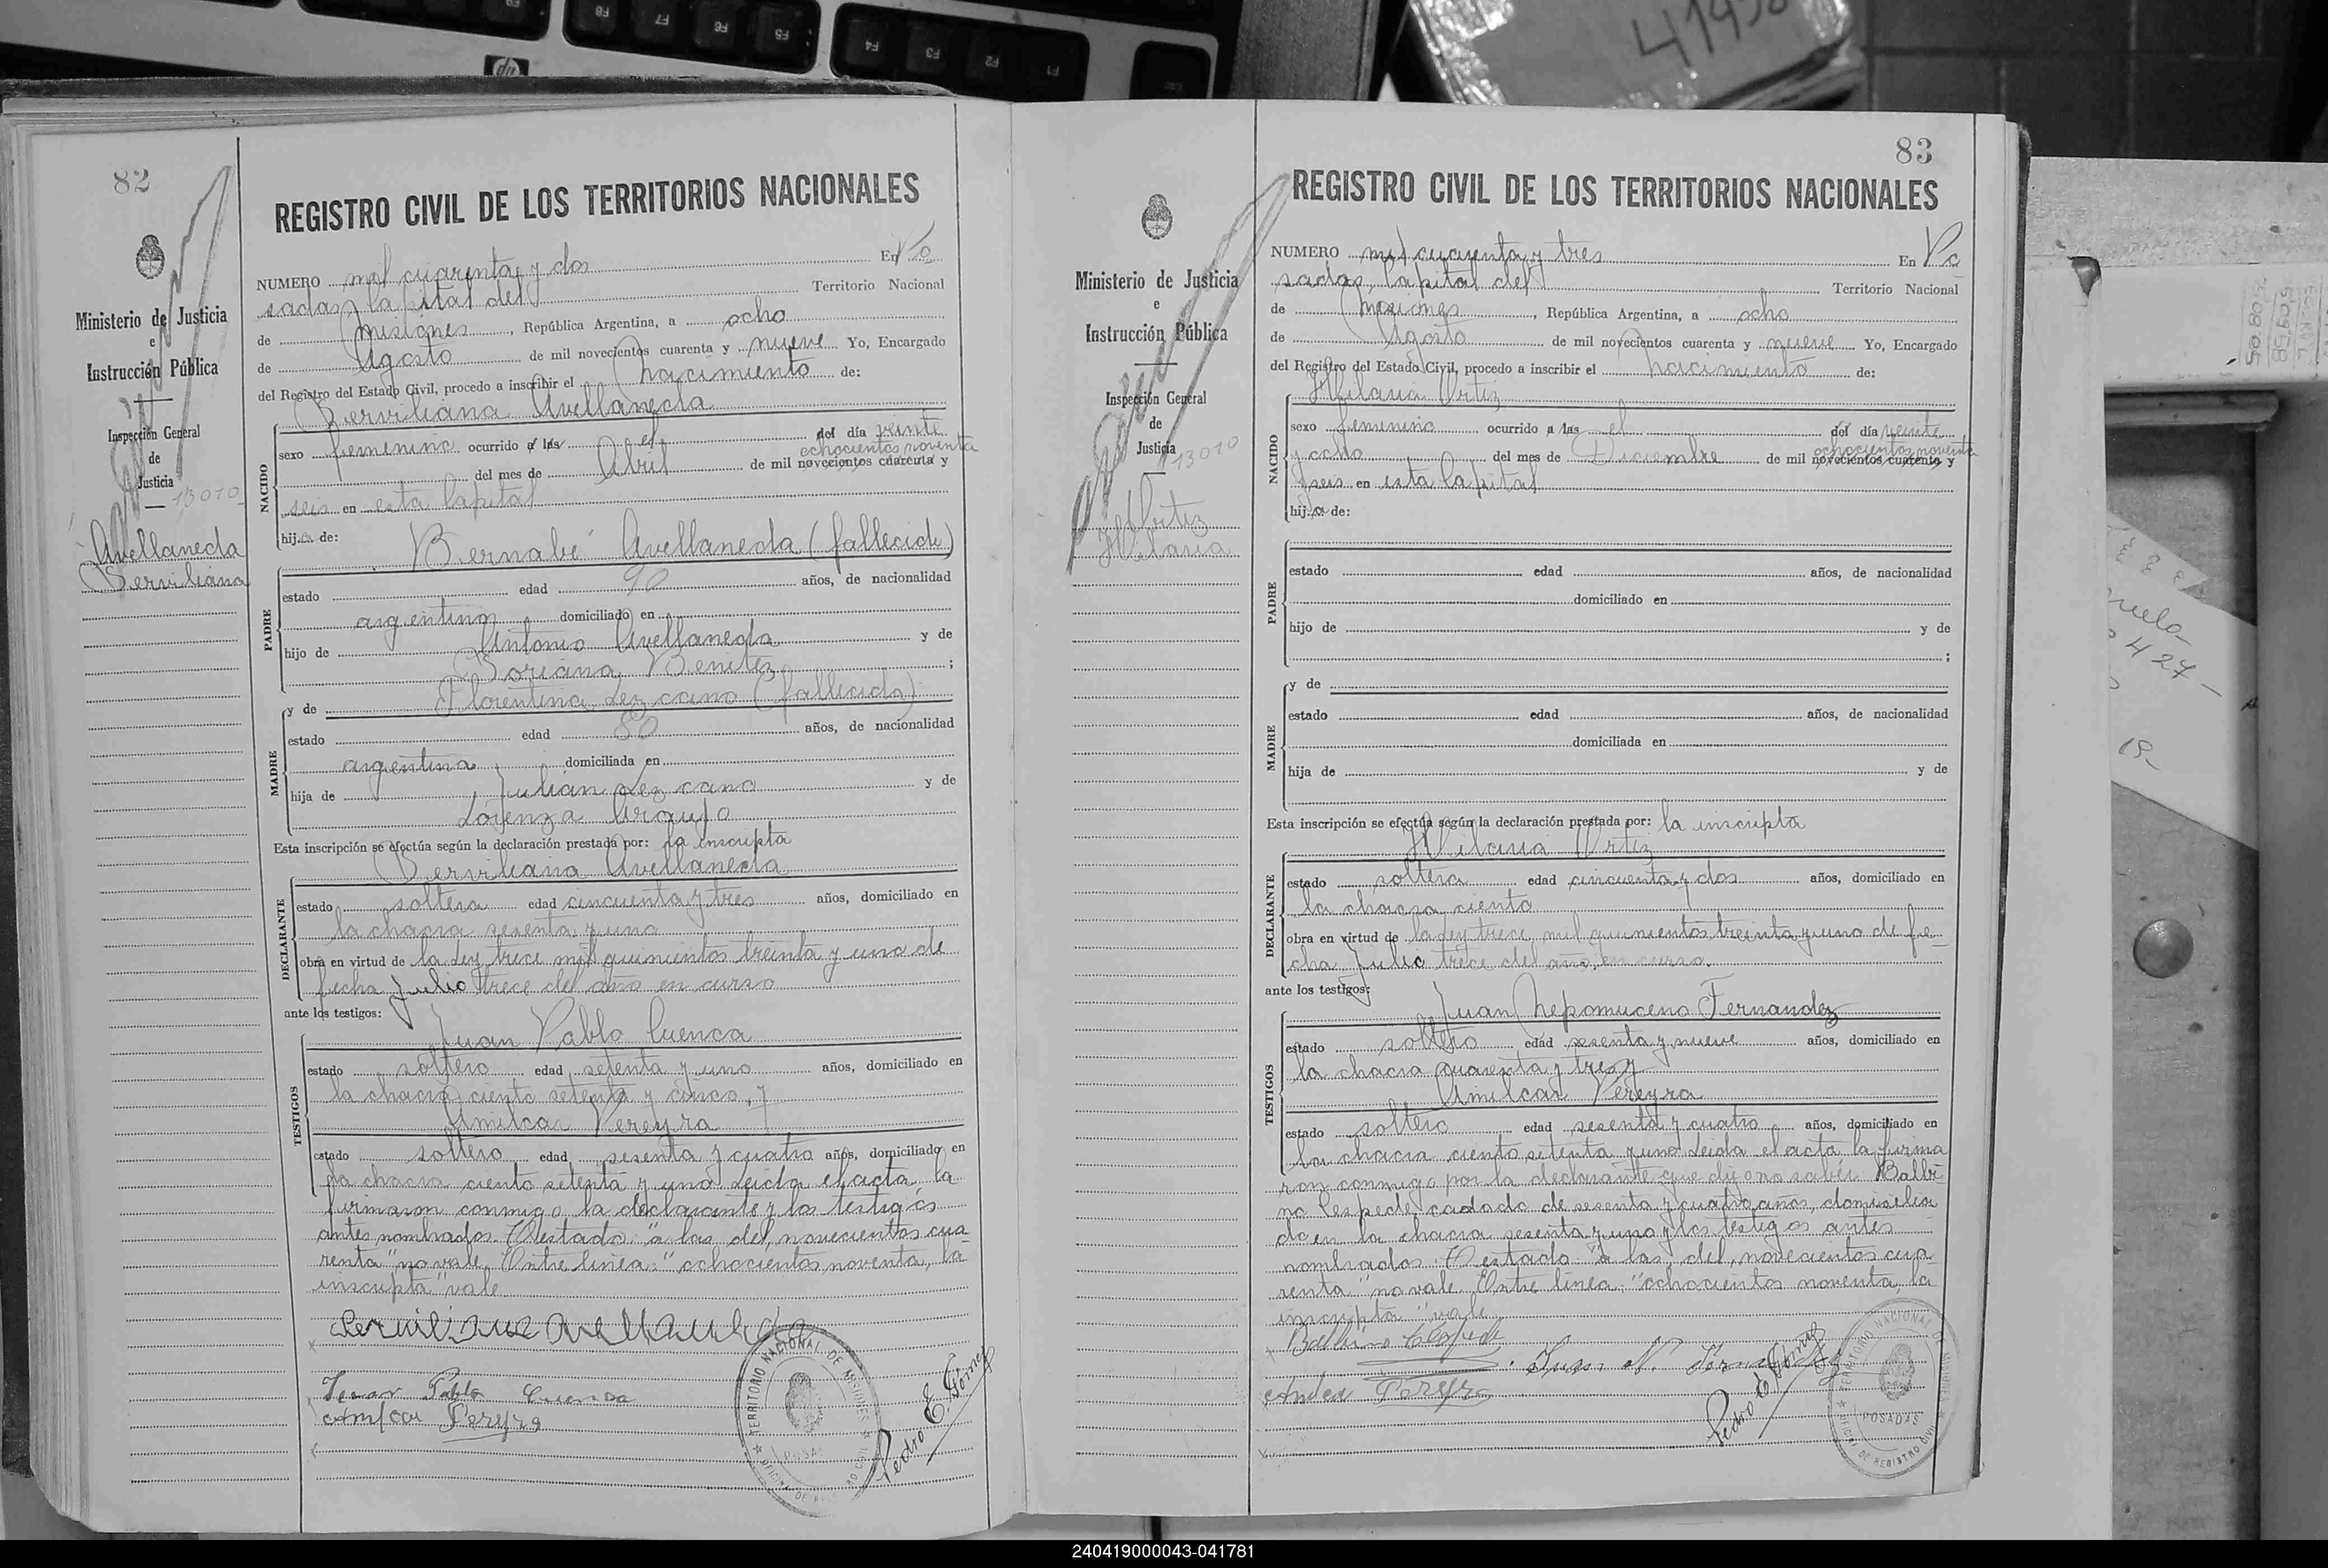 82
REGISTRO CIVIL DE LOS TERRITORIOS NACIONALES
Ministerio de Justicia
e
Instrucción Pública
Inspección General
de
Justicia
13010
Avellaneda
Serviliana
NUMERO mil cuarenta y dos En Po
sadas, Capital del Territorio Nacional
de Misiones, República Argentina, a ocho
de Agosto de mil novecientos cuarenta y nueve Yo, Encargado
del Registro del Estado Civil, procedo a inscribir el nacimiento de:
Serviliana Avellaneda
NACIDO
sexo femenino ocurrido a las el del día veinte
ochocientos noventa
del mes de Abril de mil novecientos cuarenta y
seis en esta Capital
hija de: Bernabé Avellaneda (fallecido)
PADRE
estado edad 90 años, de nacionalidad
argentino domiciliado en
hijo de Antonio Avellaneda y de
Soriana Benitez ;
y de Florentina Lezcano (fallecida)
MADRE
estado edad 80 años, de nacionalidad
argentina domiciliada en
hija de Julian Lezcano y de
Lorenza Araujo
Esta inscripción se efectúa según la declaración prestada por: la inscripta
Serviliana Avellaneda
DECLARANTE
estado soltera edad cincuenta y tres años, domiciliado en
la chacra sesenta y uno
obra en virtud de la Ley trece mil quinientos treinta y uno de
fecha Julio trece del año en curso
ante los testigos:
Juan Pablo Cuenca
TESTIGOS
estado soltero edad setenta y uno años, domiciliado en
la chacra ciento setenta y cinco, y
Amilcar Pereyra
estado soltero edad sesenta y cuatro años, domiciliado en
la chacra ciento setenta y uno Leida el acta la
firmaron conmigo la declarante y los testigos
antes nombrados. Testado: "a las del, novecientos cua
renta" no vale. Entre linea: "ochocientos noventa, la
inscripta" vale
Serviliana Avellaneda
Juan Pablo Cuenca
Amilcar Pereyra
Pedro E. Gomez
TERRITORIO NACIONAL DE MISIONES
POSADAS
83
REGISTRO CIVIL DE LOS TERRITORIOS NACIONALES
Ministerio de Justicia
e
Instrucción Pública
Inspección General
de
Justicia
13010
Ortiz
Hilaria
NUMERO mil cuarenta y tres En Po
sadas, Capital del Territorio Nacional
de Misiones, República Argentina, a ocho
de Agosto de mil novecientos cuarenta y nueve Yo, Encargado
del Registro del Estado Civil, procedo a inscribir el nacimiento de:
Hilaria Ortiz
NACIDO
sexo femenino ocurrido a las el del día veinte
ochocientos noventa
y ocho del mes de Diciembre de mil novecientos cuarenta y
seis en esta Capital
hija de:
PADRE
estado edad años, de nacionalidad
domiciliado en
hijo de y de
;
y de
MADRE
estado edad años, de nacionalidad
domiciliada en
hija de y de
Esta inscripción se efectúa según la declaración prestada por: la inscripta
Hilaria Ortiz
DECLARANTE
estado soltera edad cincuenta y dos años, domiciliado en
la chacra ciento
obra en virtud de la Ley trece mil quinientos treinta y uno de fe-
cha Julio trece del año en curso.
ante los testigos:
Juan Nepomuceno Fernandez
TESTIGOS
estado soltero edad sesenta y nueve años, domiciliado en
la chacra cuarenta y tres y
Amilcar Pereyra
estado soltero edad sesenta y cuatro años, domiciliado en
la chacra ciento setenta y uno Leida el acta la firma
ron conmigo por la declarante que dijo no saber Balbi
no Cespede, casado de sesenta y cuatro años, domicilia
do en la chacra sesenta y uno y los testigos antes
nombrados. Testado "a las, del, novecientos cua
renta" no vale. Entre linea: "ochocientos noventa, la
inscripta" vale
Balbino Cespede
Juan N. Fernandez
Amilcar Pereyra
Pedro E. Gomez
TERRITORIO NACIONAL DE MISIONES
POSADAS
OFICINA DE REGISTRO CIVIL
240419000043-041781